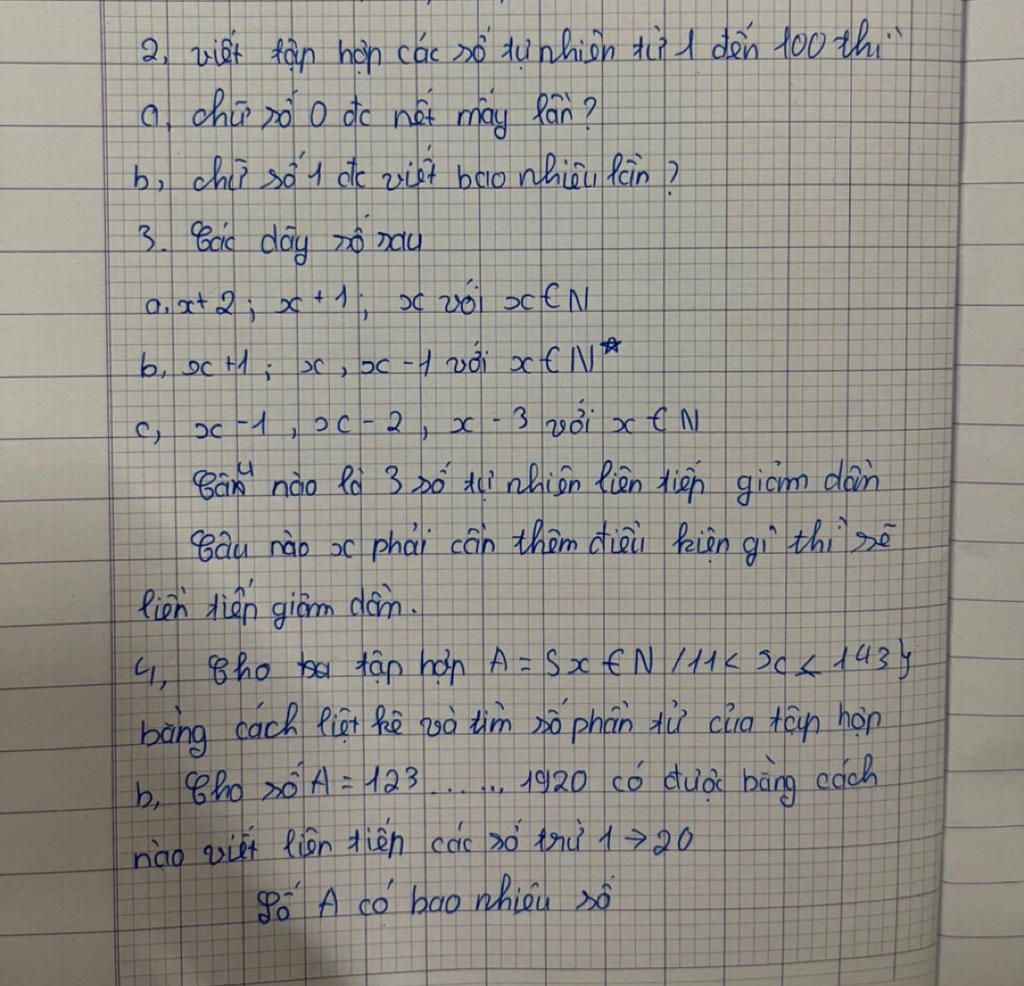 2, viết tập hợp các số tự nhiên từ 1 đến 100 thì
a, chữ số 0 đc nết mấy lần?
b, chữ số 1 đc viết bao nhiêu lần?
3. Các dãy số sau
a, x+2; x+1; x với x∈N
b, x+1; x, x-1 với x∈N*
c, x-1, x-2, x-3 với x∈N
Câu nào là 3 số tự nhiên liên tiếp giảm dần
Câu nào x phải cần thêm điều kiện gì thì sẽ
liên tiếp giảm dần.
4, Cho tập hợp A = {x ∈ N / 11 < x < 143}
bằng cách liệt kê và tìm số phần tử của tập hợp
b, Cho số A = 123...... 1920 có được bằng cách
nào viết liên tiếp các số từ 1→20
Số A có bao nhiêu số